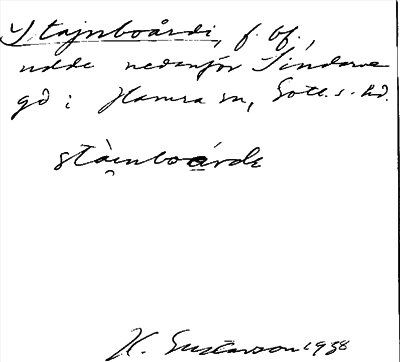 Stajnboårdi, f. bf.,
udde nedanför Sindarve
gd i Hamra sn, Gotl. s. hd.
stàinboárde
H. Gustavson 1938